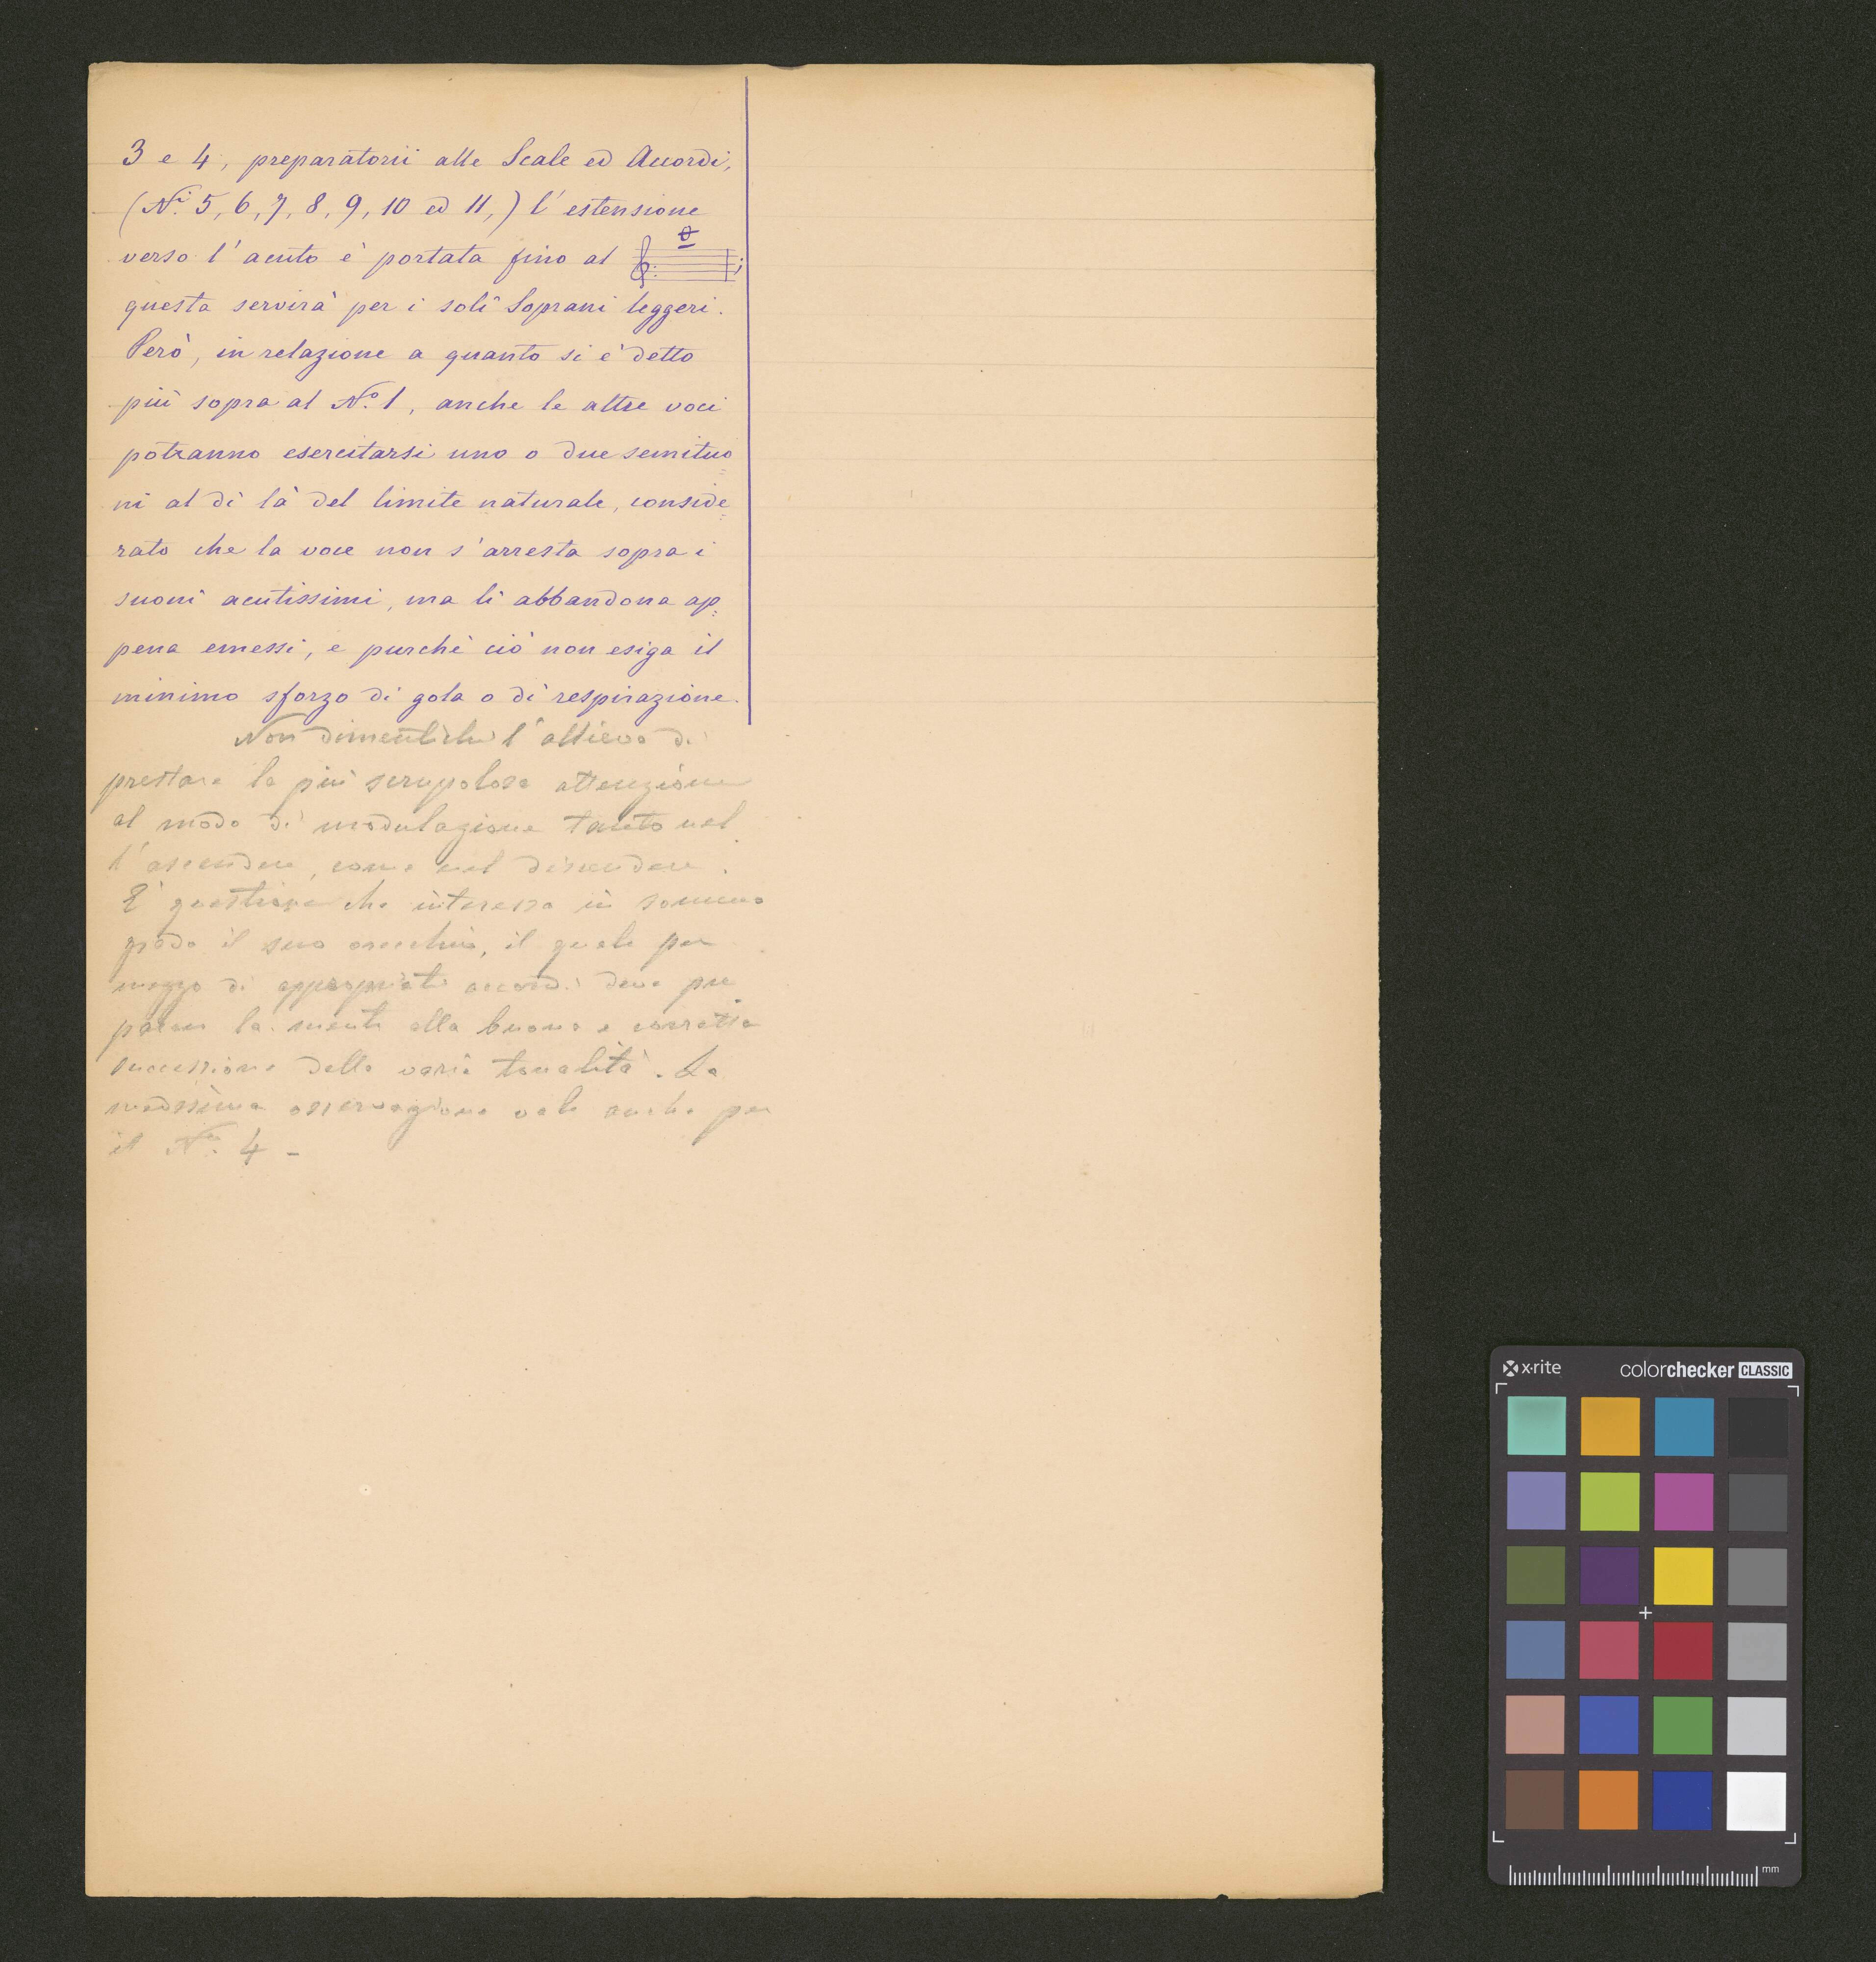 3 e 4, preparatorii alle Scale ed Accordi,
(Ni. 5, 6, 7, 8, 9, 10 ed 11,) l'estensione
verso l'acuto è portata fino al ;
questa servirà per i soli Soprani leggeri.
Però, in relazione a quanto si è detto
più sopra al No. 1, anche le altre voci
potranno esercitarsi uno o due semituo
ni al di là del limite naturale, conside
rato che la voce non s'arresta sopra i
suoni acutissimi, ma li abbandona ap
pena emessi, e purchè ciò non esiga il
minimo sforzo di gola o di respirazione.
Non dimentichi l'allievo di
prestare la più scrupolosa attenzione
al modo di modulazione tanto nel
l'ascendere, come nel discendere.
È questione che interessa in sommo
grado il suo orecchio, il quale per
mezzo di appropriati accordi deve pre
parare la mente alla buona e corretta
successione delle varie tonalità. La
medesima osservazione vale anche per
il No. 4 -
x·rite
colorchecker CLASSIC
mm